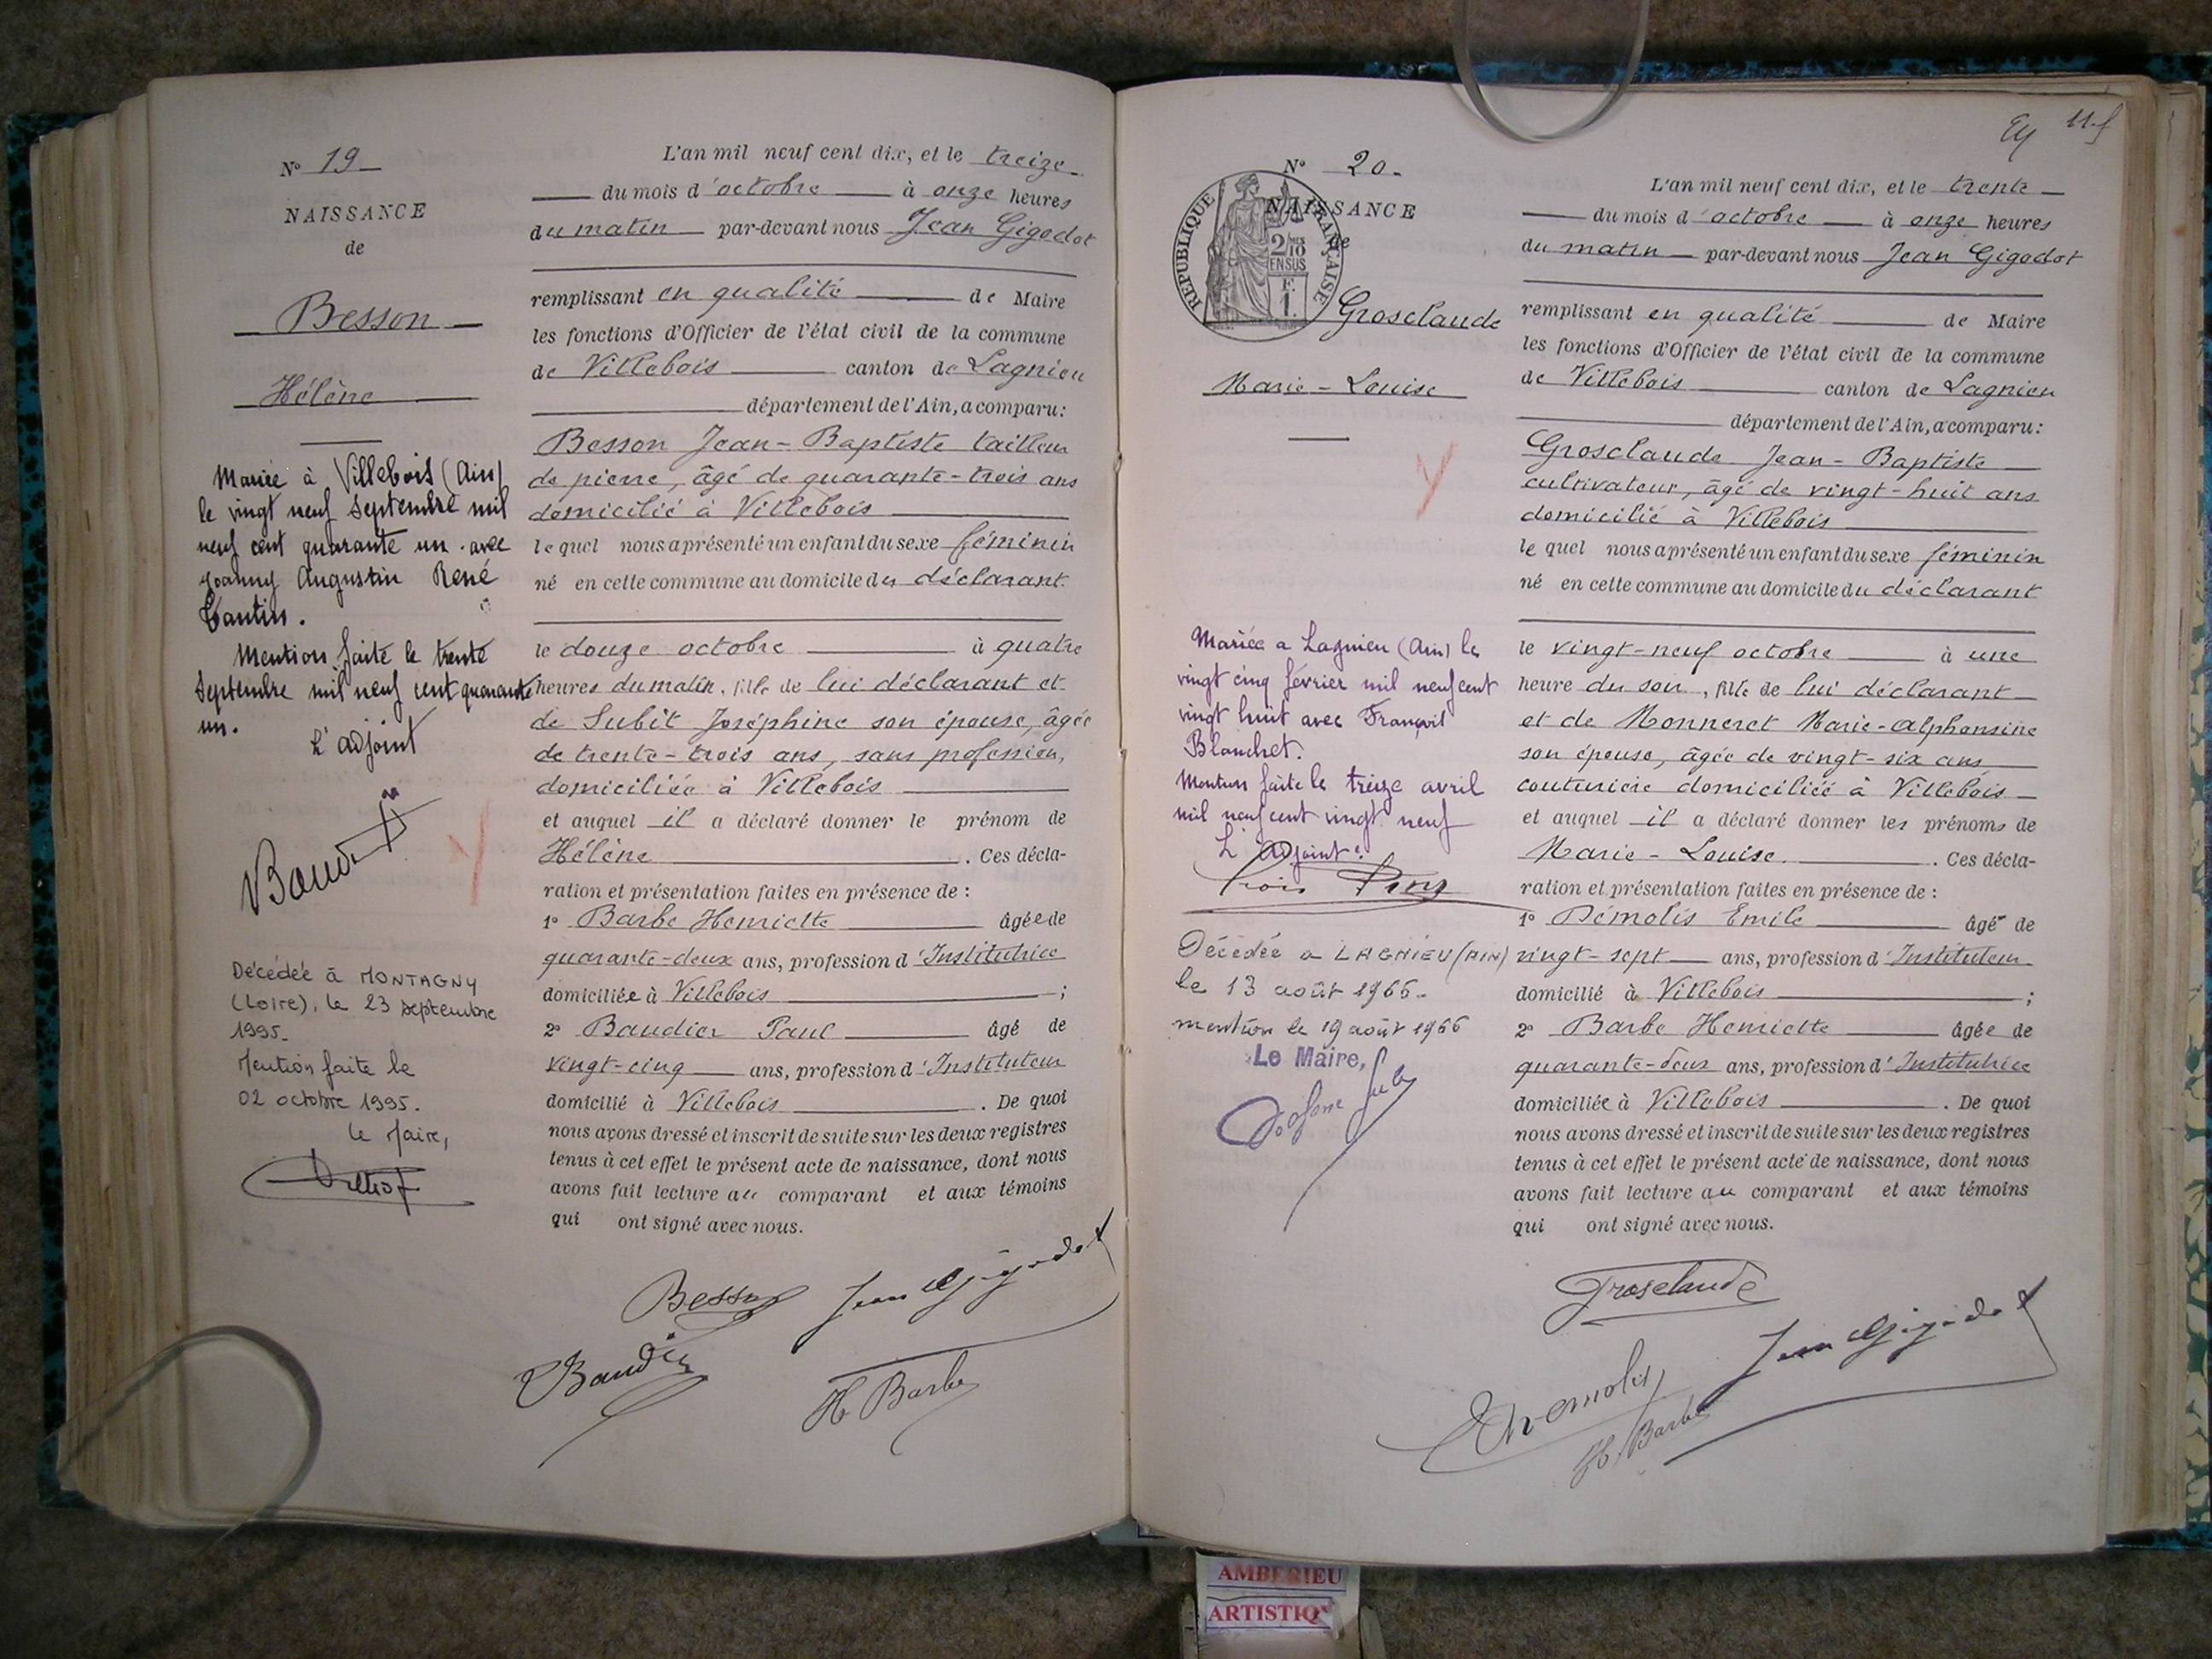 Nº 19
NAISSANCE
de
Besson
Hélène
Mariée à Villebois (Ain)
le vingt neuf Septembre mil
neuf cent quarante un avec
Joanny Augustin René
Tantin.
Mention faite le trente
Septembre mil neuf cent quarante
un.
L'adjoint
Décédée à MONTAGNY
(Loire), le 23 septembre
1995.
Mention faite le
02 octobre 1995.
Le Maire,
L'an mil neuf cent dix, et le treize
du mois d'octobre à onze heures
du matin par-devant nous Jean Gigodot
remplissant en qualité de Maire
les fonctions d'Officier de l'état civil de la commune
de Villebois canton de Lagnieu
département de l'Ain, a comparu:
Besson Jean-Baptiste tailleur
de pierre, âgé de quarante-trois ans
domicilié à Villebois
lequel nous a présenté un enfant du sexe féminin
né en cette commune au domicile du déclarant
le douze octobre à quatre
heures du matin, fille de lui déclarant et
de Subit Joséphine son épouse, âgée
de trente-trois ans, sans profession,
domiciliée à Villebois
et auquel il a déclaré donner le prénom de
Hélène. Ces décla-
ration et présentation faites en présence de :
1º Barbe Henriette âgée de
quarante-deux ans, profession d'Institutrice
domiciliée à Villebois ;
2º Baudier Paul âgé de
vingt-cinq ans, profession d'Instituteur
domicilié à Villebois. De quoi
nous avons dressé et inscrit de suite sur les deux registres
tenus à cet effet le présent acte de naissance, dont nous
avons fait lecture au comparant et aux témoins
qui ont signé avec nous.
Besson Jean Gigodot
Baudier H Barbe
115
Nº 20
NAISSANCE
de
REPUBLIQUE FRANÇAISE
2/10
EN SUS
F.
1.
Grosclaude
Marie-Louise
Mariée a Lagnieu (Ain) le
vingt cinq février mil neuf cent
vingt huit avec François
Blanchet.
Mention faite le treize avril
mil neuf cent vingt neuf
L'Adjoint.
Décédée a LAGNIEU (AIN)
le 13 août 1966.
mention le 19 août 1966
Le Maire,
L'an mil neuf cent dix, et le trente
du mois d'octobre à onze heures
du matin par-devant nous Jean Gigodot
remplissant en qualité de Maire
les fonctions d'Officier de l'état civil de la commune
de Villebois canton de Lagnieu
département de l'Ain, a comparu:
Grosclaude Jean-Baptiste
cultivateur, âgé de vingt-huit ans
domicilié à Villebois
lequel nous a présenté un enfant du sexe féminin
né en cette commune au domicile du déclarant
le vingt-neuf octobre à une
heure du soir, fille de lui déclarant
et de Monneret Marie-Alphonsine
son épouse, âgée de vingt-six ans
couturière domiciliée à Villebois
et auquel il a déclaré donner les prénoms de
Marie-Louise. Ces décla-
ration et présentation faites en présence de :
1º Démolis Emile âgé de
vingt-sept ans, profession d'Instituteur
domicilié à Villebois ;
2º Barbe Henriette âgée de
quarante-deux ans, profession d'Institutrice
domiciliée à Villebois. De quoi
nous avons dressé et inscrit de suite sur les deux registres
tenus à cet effet le présent acte de naissance, dont nous
avons fait lecture au comparant et aux témoins
qui ont signé avec nous.
Grosclaude
Jean Gigodot
Démolis
H. Barbe
AMBERIEU
ARTISTIQ